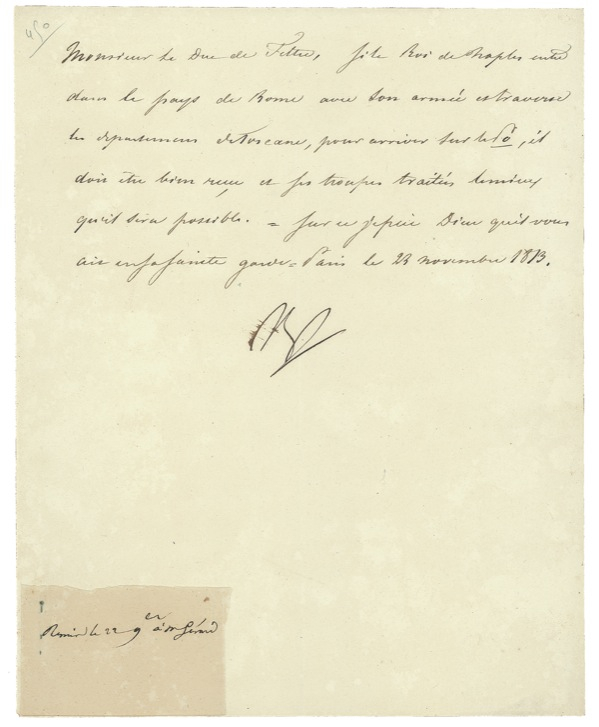 450
Monsieur le Duc de Feltre, si le Roi de Naples entre
dans le pays de Rome avec son armée et traverse
les departemens de Toscane, pour arriver sur le Pô, il
doit etre bien reçu et ses troupes traités le mieux
qu'il sera possible. = sur ce je prie Dieu qu'il vous
ait en sa sainte garde = Paris le 23 novembre 1813.
Np
Remis le 22 9 er à Mr Gérard